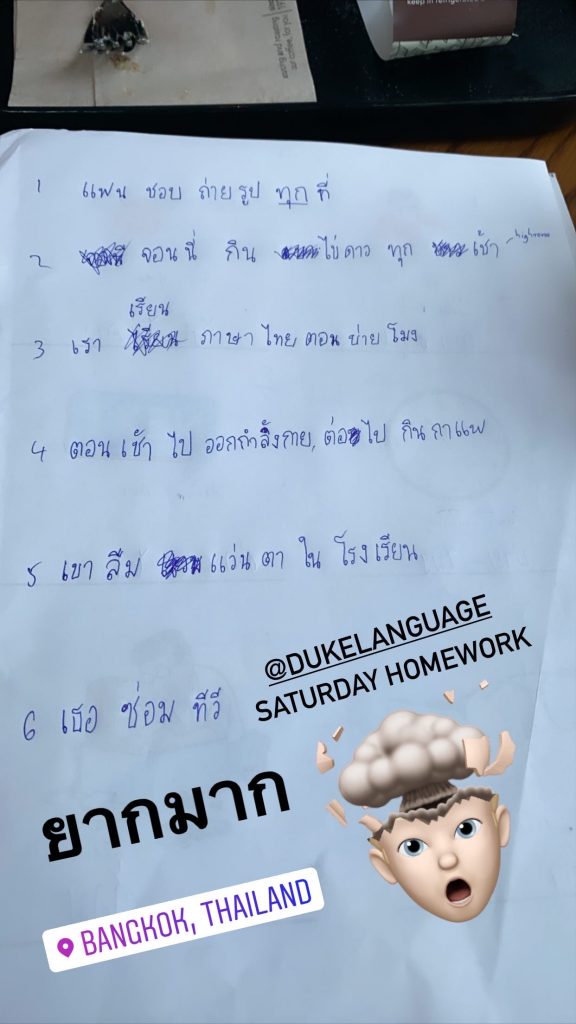 keep in refrigerated
1 แฟน ชอบ ถ่าย รูป ทุก ที่
2 จอนนี่ กิน ไข่ดาว ทุก เช้า
เรียน
3 เรา ภาษา ไทย ตอน บ่าย โมง
4 ตอน เช้า ไป ออกกำลังกาย, ต่อ ไป กิน กาแฟ
5 เขา ลืม แว่น ตา ใน โรง เรียน
6 เธอ ซ่อม ทีวี
@DUKELANGUAGE
SATURDAY HOMEWORK
ยากมาก
BANGKOK, THAILAND